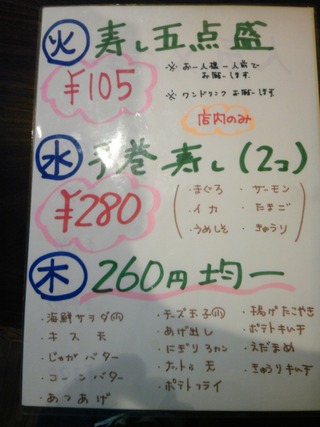 火 寿し五点盛
¥105
※ お一人様一人前で
お願いします。
※ ワンドリンクお願いします。
店内のみ
水 手巻寿し(2コ)
¥280
・まぐろ ・サーモン
・イカ ・たまご
・うめしそ ・きゅうり
木 260円均一
・海鮮サラダ(小) ・チーズ玉子(小) ・揚げたこやき
・キス天 ・あげ出し ・ポテトキムチ
・じゃがバター ・にぎり3カン ・えだまめ
・コーンバター ・なっとう天 ・きゅうりキムチ
・あつあげ ・ポテトフライ